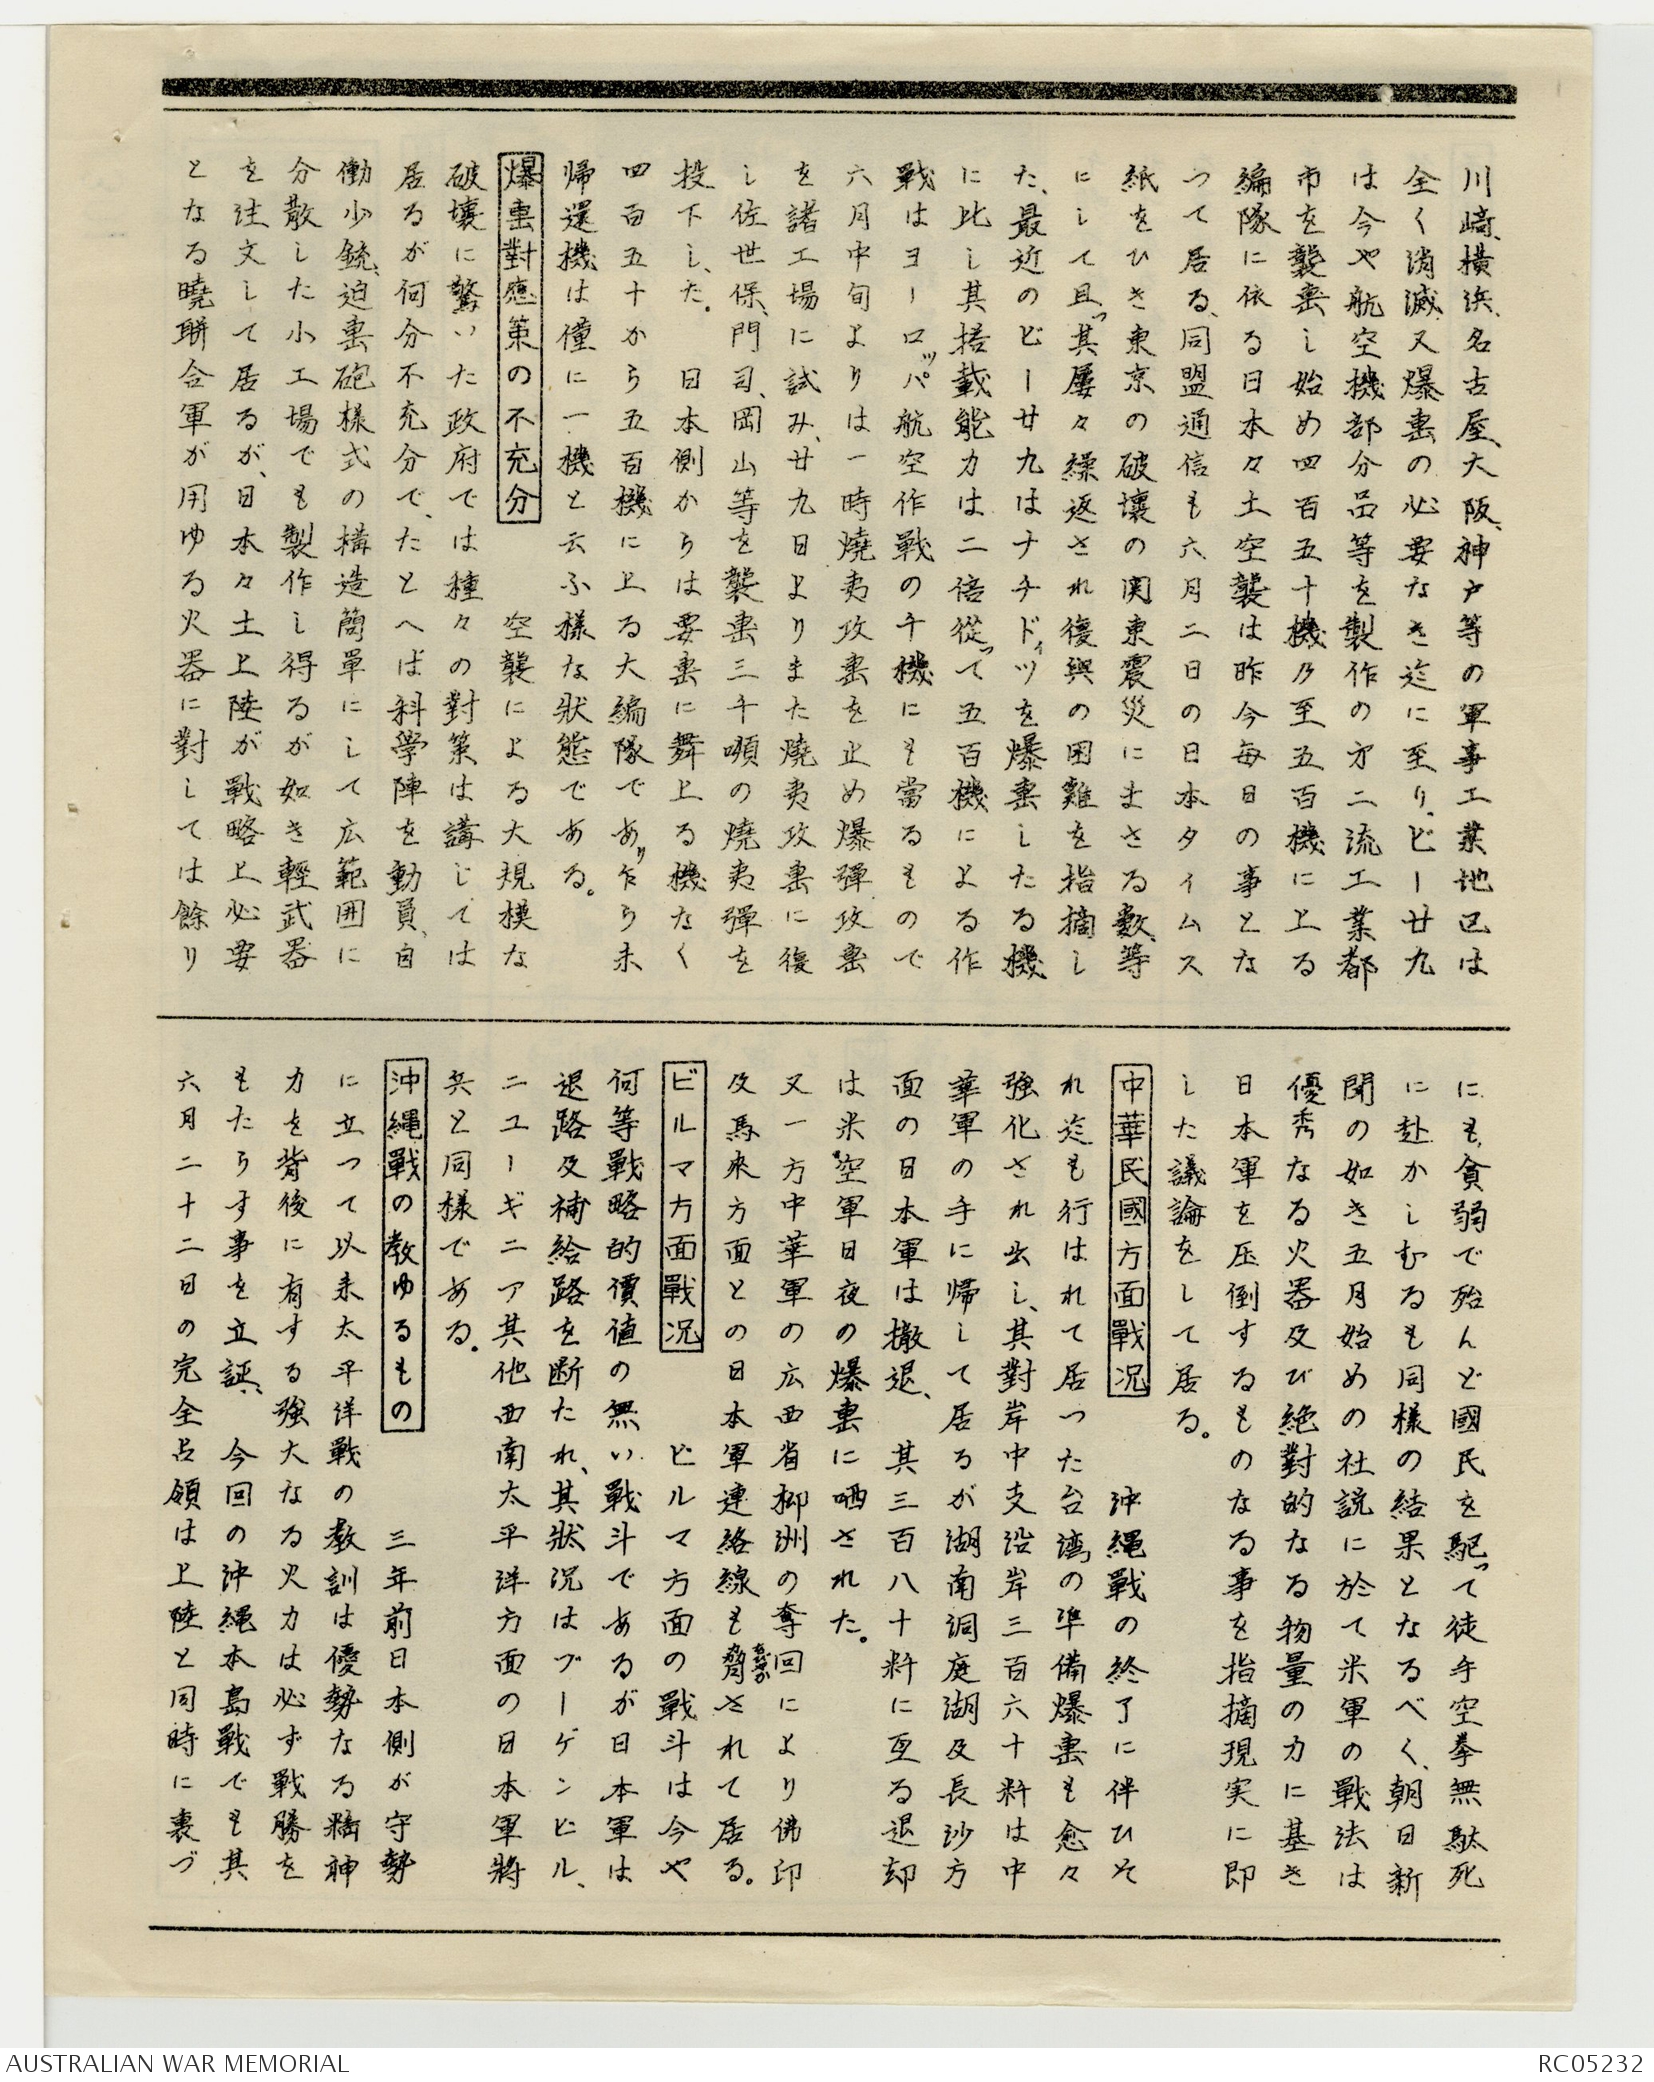 川崎、横浜、名古屋、大阪、神戸等の軍事工業地区は
全く消滅又爆撃の必要なき迄に至り、ビー廿九
は今や航空機部分品等を製作の才二流工業都
市を襲撃し始め四百五十機乃至五百機に上る
編隊に依る日本々土空襲は昨今毎日の事とな
つて居る、同盟通信も六月二日の日本タイムス
紙をひき東京の破壊の関東震災にまさる数等
にして且つ其屡々繰返され復興の困難を指摘し
た、最近のビー廿九はナチドイツを爆撃したる機
に比し其搭載能力は二倍従つて五百機による作
戦はヨーロッパ航空作戦の千機にも當るもので
六月中旬よりは一時焼夷攻撃を止め爆弾攻撃
を諸工場に試み、廿九日よりまた焼夷攻撃に復
し佐世保、門司、岡山等を襲撃三千噸の焼夷弾を
投下した。 日本側からは要撃に舞上る機なく
四百五十から五百機に上る大編隊であり乍ら未
帰還機は僅に一機と云ふ様な状態である。
爆撃對應策の不充分 空襲による大規模な
破壊に驚いた政府では種々の對策は講じては
居るが何分不充分で、たとへば科學陣を動員、自
働少銃、迫撃砲様式の構造簡單にして広範囲に
分散した小工場でも製作し得るが如き輕武器
を注文して居るが、日本々土上陸が戦略上必要
となる曉聯合軍が用ゆる火器に對しては餘り
にも貪弱で殆んど國民を駆つて徒手空拳無駄死
に赴かしむるも同様の結果となるべく、朝日新
聞の如き五月始めの社説に於て米軍の戦法は
優秀なる火器及び絶對的なる物量の力に基き
日本軍を圧倒するものなる事を指摘現実に即
した議論をして居る。
中華民國方面戰況 沖縄戰の終了に伴ひそ
れ迄も行はれて居つた台湾の準備爆撃も愈々
強化され出し、其對岸中支沿岸三百六十粁は中
華軍の手に帰して居るが湖南洞庭湖及長沙方
面の日本軍は撤退、其三百八十粁に亙る退却
は米空軍日夜の爆撃に晒された。
又一方中華軍の広西省柳州の奪回により佛印
及馬来方面との日本軍連絡線も脅かされて居る。
ビルマ方面戰況 ビルマ方面の戦斗は今や
何等戰略的價値の無い戦斗であるが日本軍は
退路及補給路を断たれ、其狀況はブーゲンビル、
ニユーギニア其他西南太平洋方面の日本軍將
兵と同様である。
沖縄戰の教ゆるもの 三年前日本側が守勢
に立つて以来太平洋戰の教訓は優勢なる精神
力を背後に有する強大なる火力は必ず戰勝を
もたらす事を立証、今回の沖縄本島戦でも其
六月二十二日の完全占領は上陸と同時に裏づ
AUSTRALIAN WAR MEMORIAL
RC05232